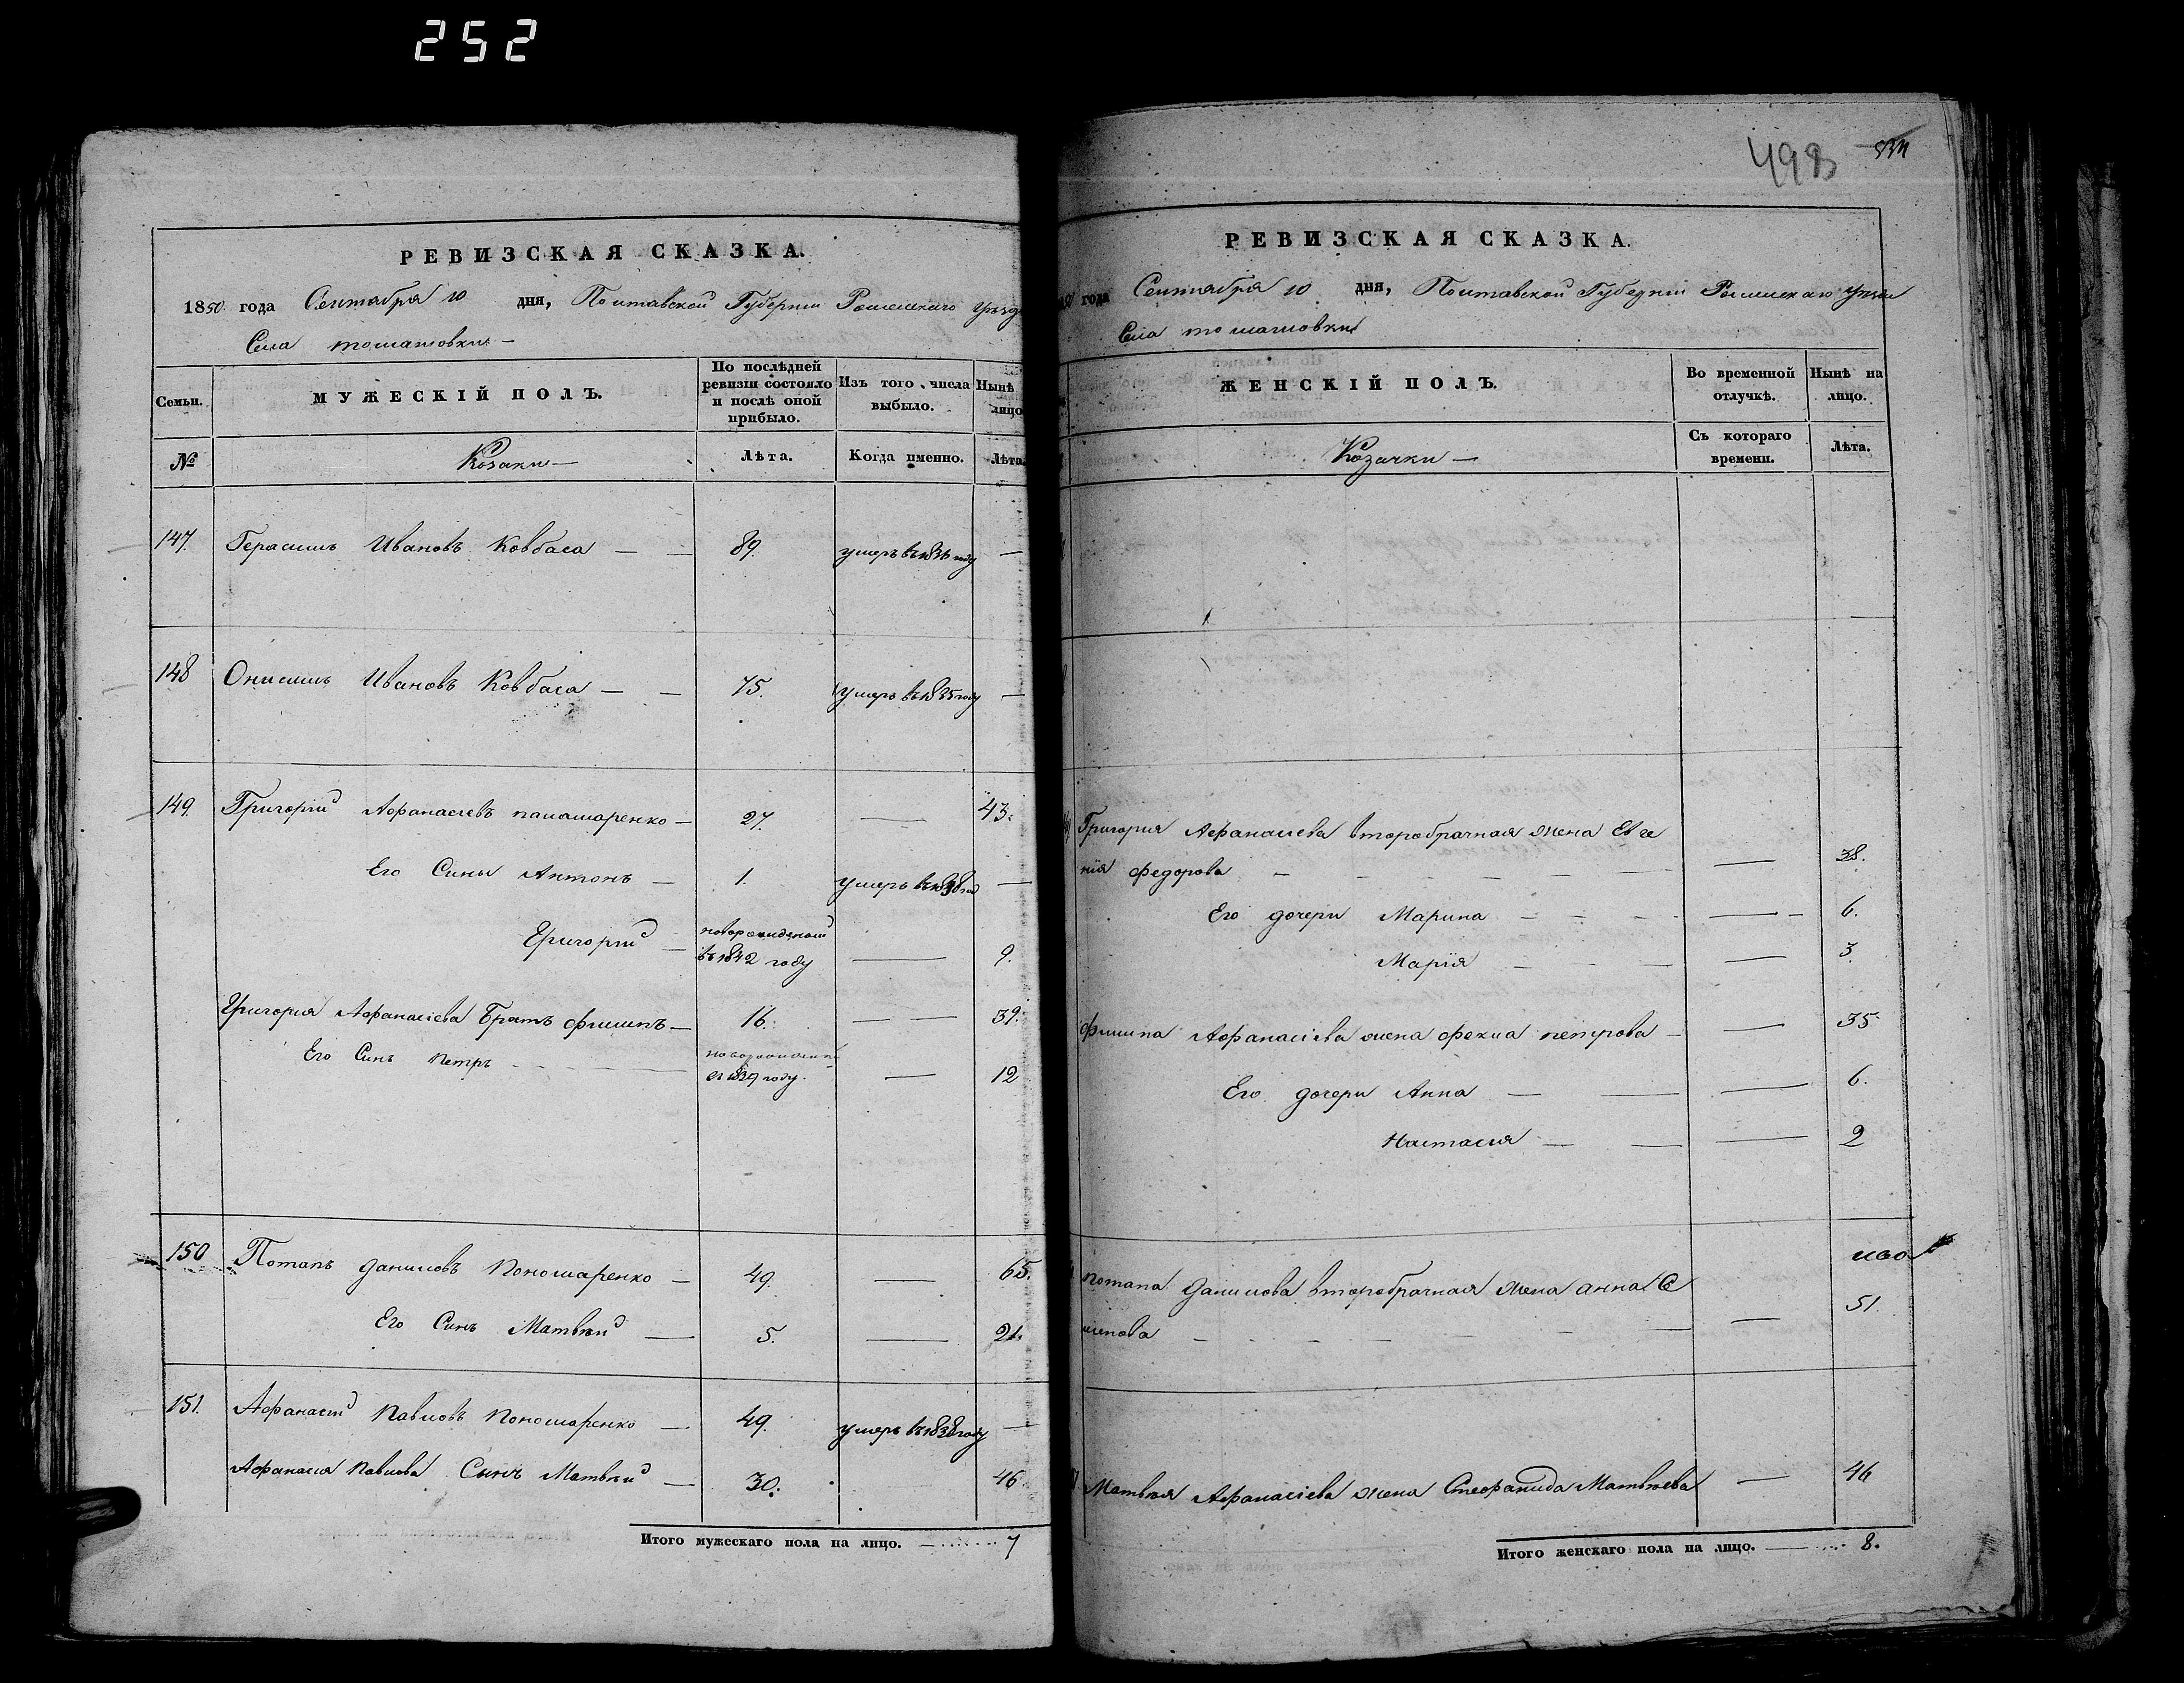 252
РЕВИЗСКАЯ СКАЗКА.
1850 года Сентября 10 дня, Полтавской Губернии Роменскаго уезд
Села
Семьи. МУЖЕСКІЙ ПОЛЪ. По послѣдней ревизіи состояло и послѣ оной прибыло. Изъ того числа выбыло. Нынѣ лицо
№ Козаки — Лѣта. Когда именно. Лѣта
147. Герасимъ Ивановъ Ковбаса — — 89. умеръ въ году —
148 Онисимъ Ивановъ Ковбаса — — 75. умеръ въ 1835 году —
149. Григорій Афанасіевъ — 27. — 43.
Его Сины Антонъ — 1. умеръ въ —
Григорій — новорожденый въ 1842 году — 9.
Григорія Афанасіева Братъ Филипъ — 16. — — 39.
Его Синъ Петръ - - - 1839 году. — 12
150 Потапъ Даниловъ Пономаренко — 49. — 65.
Его Синъ Матвѣй — 5. — 21.
151. Афанасій Павловъ Пономаренко — 49. умеръ въ 1838 году —
Афанасія Павлова Сынъ Матвѣй — 30. 46.
Итого мужескаго пола на лицо. — 7
498
РЕВИЗСКАЯ СКАЗКА.
года Сентября 10 дня, Полтавской Губерніи Роменскаго уезда
Села
ЖЕНСКІЙ ПОЛЪ. Во временной отлучкѣ. Нынѣ на лицо.
Козачки — Съ котораго времени. Лѣта.
Григорія Афанасіева второбрачная жена Евге
нія Федорова — — 38.
Его дочери Марина — — 6.
Марія — — 3.
Филипа Афанасіева жена Фекла Петрова — — 35
Его дочери Анна — — 6.
Настасия — — 2
Потапа Данилова второбрачная жена Анна Се
менова — — 51.
Матвѣя Афанасіева жена Стефанида Матвѣева — 46
Итого женскаго пола на лицо. — 8.